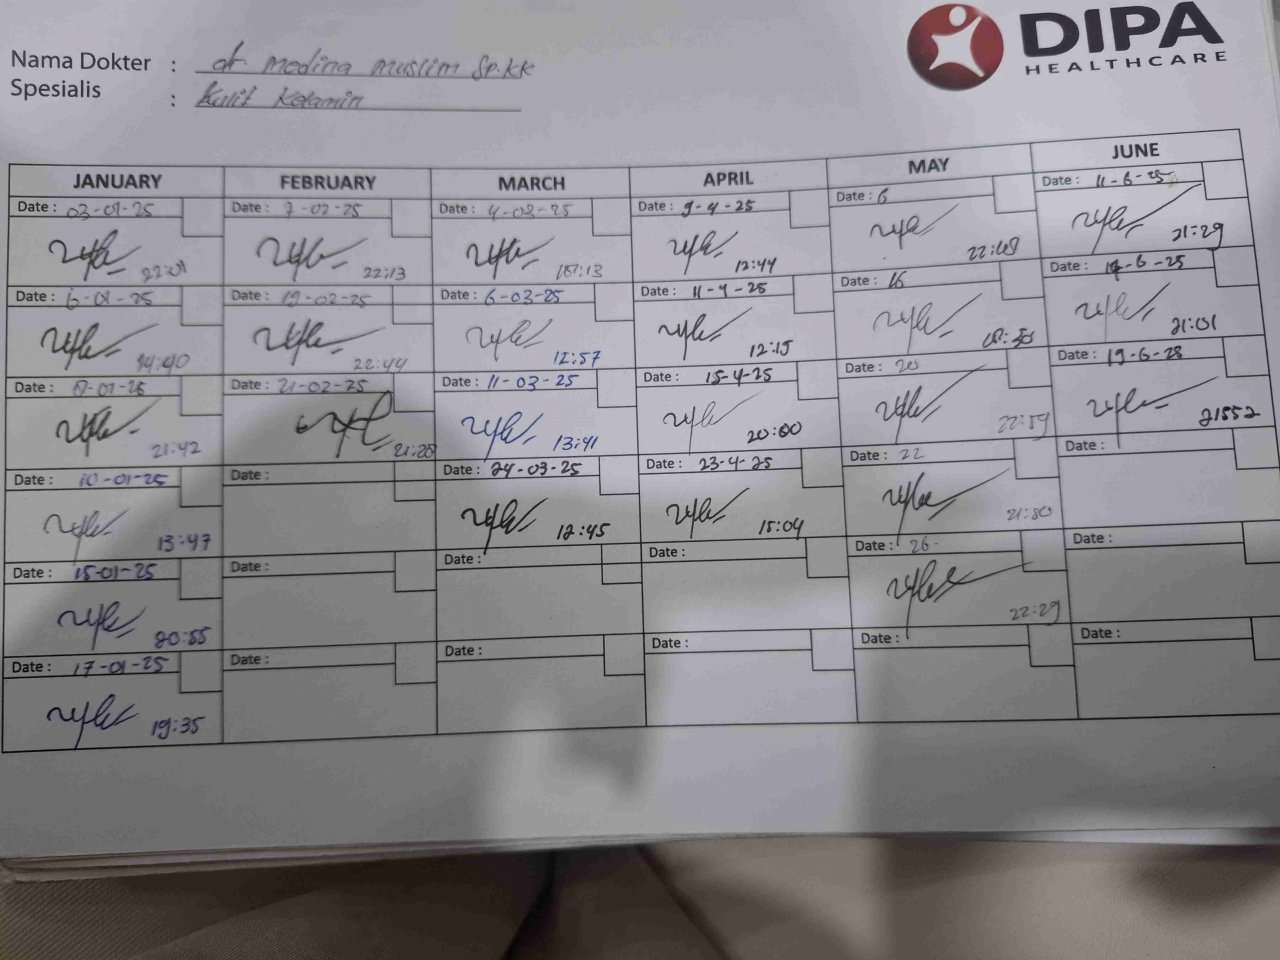 DIPA
HEALTHCARE
Nama Dokter : dr. Medina Muslim Sp.KK
Spesialis : Kulit Kelamin
JANUARY FEBRUARY MARCH APRIL MAY JUNE
Date : 03-01-25 Date : 7-02-25 Date : 4-03-25 Date : 9-4-25 Date : 6 Date : 11-6-25
22:01 22:13 12:44 21:29
Date : 6-01-25 Date : 19-02-25 Date : 6-03-25 Date : 11-4-25 Date : 16 Date : 14-6-25
14:40 22:44 12:57 12:15 21:01
Date : Date : 21-02-25 Date : 11-03-25 Date : 15-4-25 Date : 20 Date :
21:42 21:28 13:41 20:00 22:59 21552
Date : 10-01-25 Date : Date : 24-03-25 Date : 23-4-25 Date : 22 Date :
13:47 12:45 15:04 21:50
Date : 15-01-25 Date : Date : Date : Date : 26- Date :
20:55 22:29
Date : 17-01-25 Date : Date : Date : Date : Date :
19:35